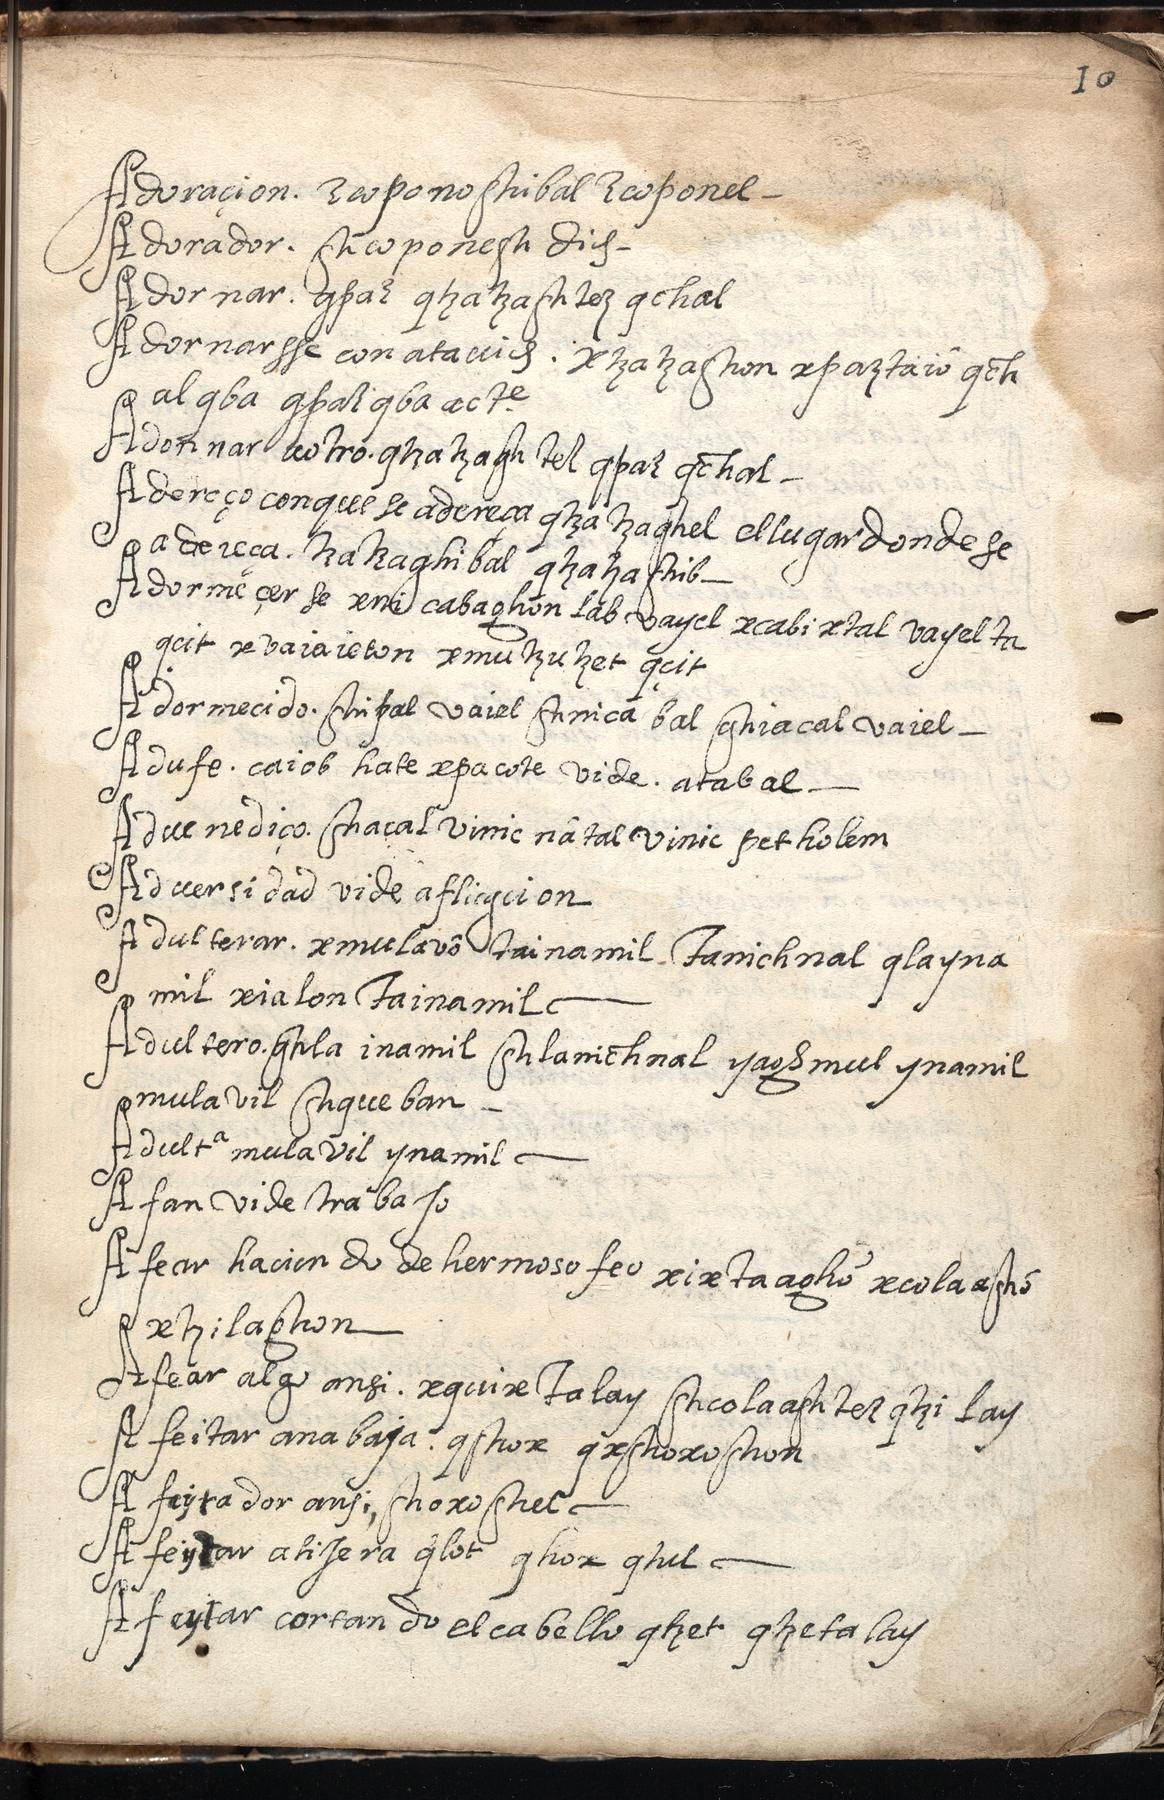 10
Adoraçion. ꜫcoponoghibal ꜫcoponel
Adorador. ghcoponegh dios
Adornar. qpaꜫ qtzatzaghteꜫ qchal
Adornarsse con atauios. xtzatzaghon xpaꜫtaiô qch
al qba qpaꜫ qba xcte
Adornar a otro. qtzatzaghteꜫ qpaꜫ qchal
Adereço conque se adereça qtzatzaghel el lugar donde se
adereça. tzatzaghibal qtzatzaghib
Adormeçerse xni cabaghon lab vayel xcabixtal vayel tu
qcit xvaiaieton xmutzutzet qcit
Adormecido. ghipal vaiel ghnicabal ghiacal vaiel
Adufe. caiob hate xpacote vide. atabal
Aduenediço. ghacal vinic nâtal vinic petholem
Aduersidad vide afliçcion
Adulterar. xmulavô tainamil Tanichnal qlayna
mil xialon Tainamil
Adultero. ghla inamil ghlanichnal yaghmul ynamil
mulavil ghqueban
Adultª mulavil ynamil
Afan vide trabaJo
Afear haciendo de hermoso feo xixtaaghô xcolaaghô
xtzilaghon
Afear algo ansi. xquixtalay ghcolaaghteꜫ qtzilay
Afeitar a nabaja. qghox qxghoxoghon
Afeytador ansi, ghoxoghel
Afeytar a tiJera qlot qhox qtul
Afeytar cortando el cabello qtzet qtzetalay